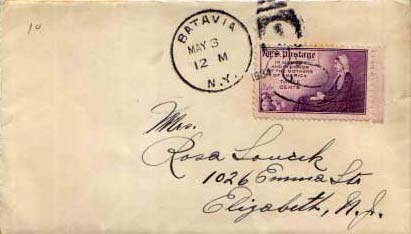 10
BATAVIA
MAY 3
12 M
N.Y.
1934
U.S. Postage
IN MEMORY
AND IN HONOR
OF THE MOTHERS
OF AMERICA
THREE
CENTS
Mrs.
Rosa Loucek
1026 Emma Str
Elizabeth, N.J.